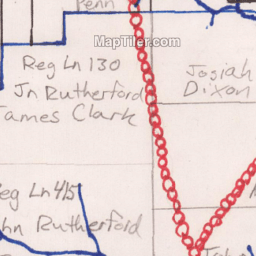 Penn
MapTiler.com
Reg Ln 130
Jn Rutherford
James Clark
Josiah
Dixon
Reg Ln 415
John Rutherford